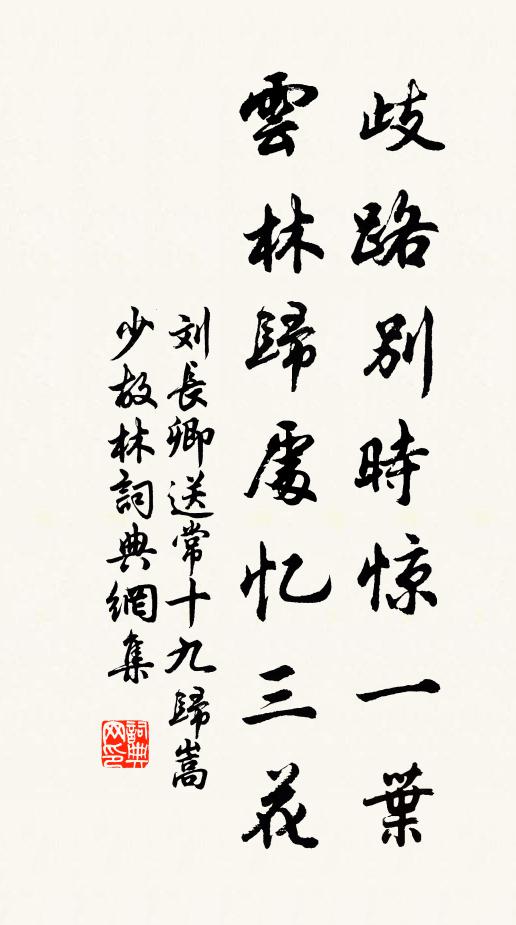 歧路別時惊一葉
雲林歸處忆三花
刘長卿送常十九歸嵩
少故林詞典網集
詞典
网印